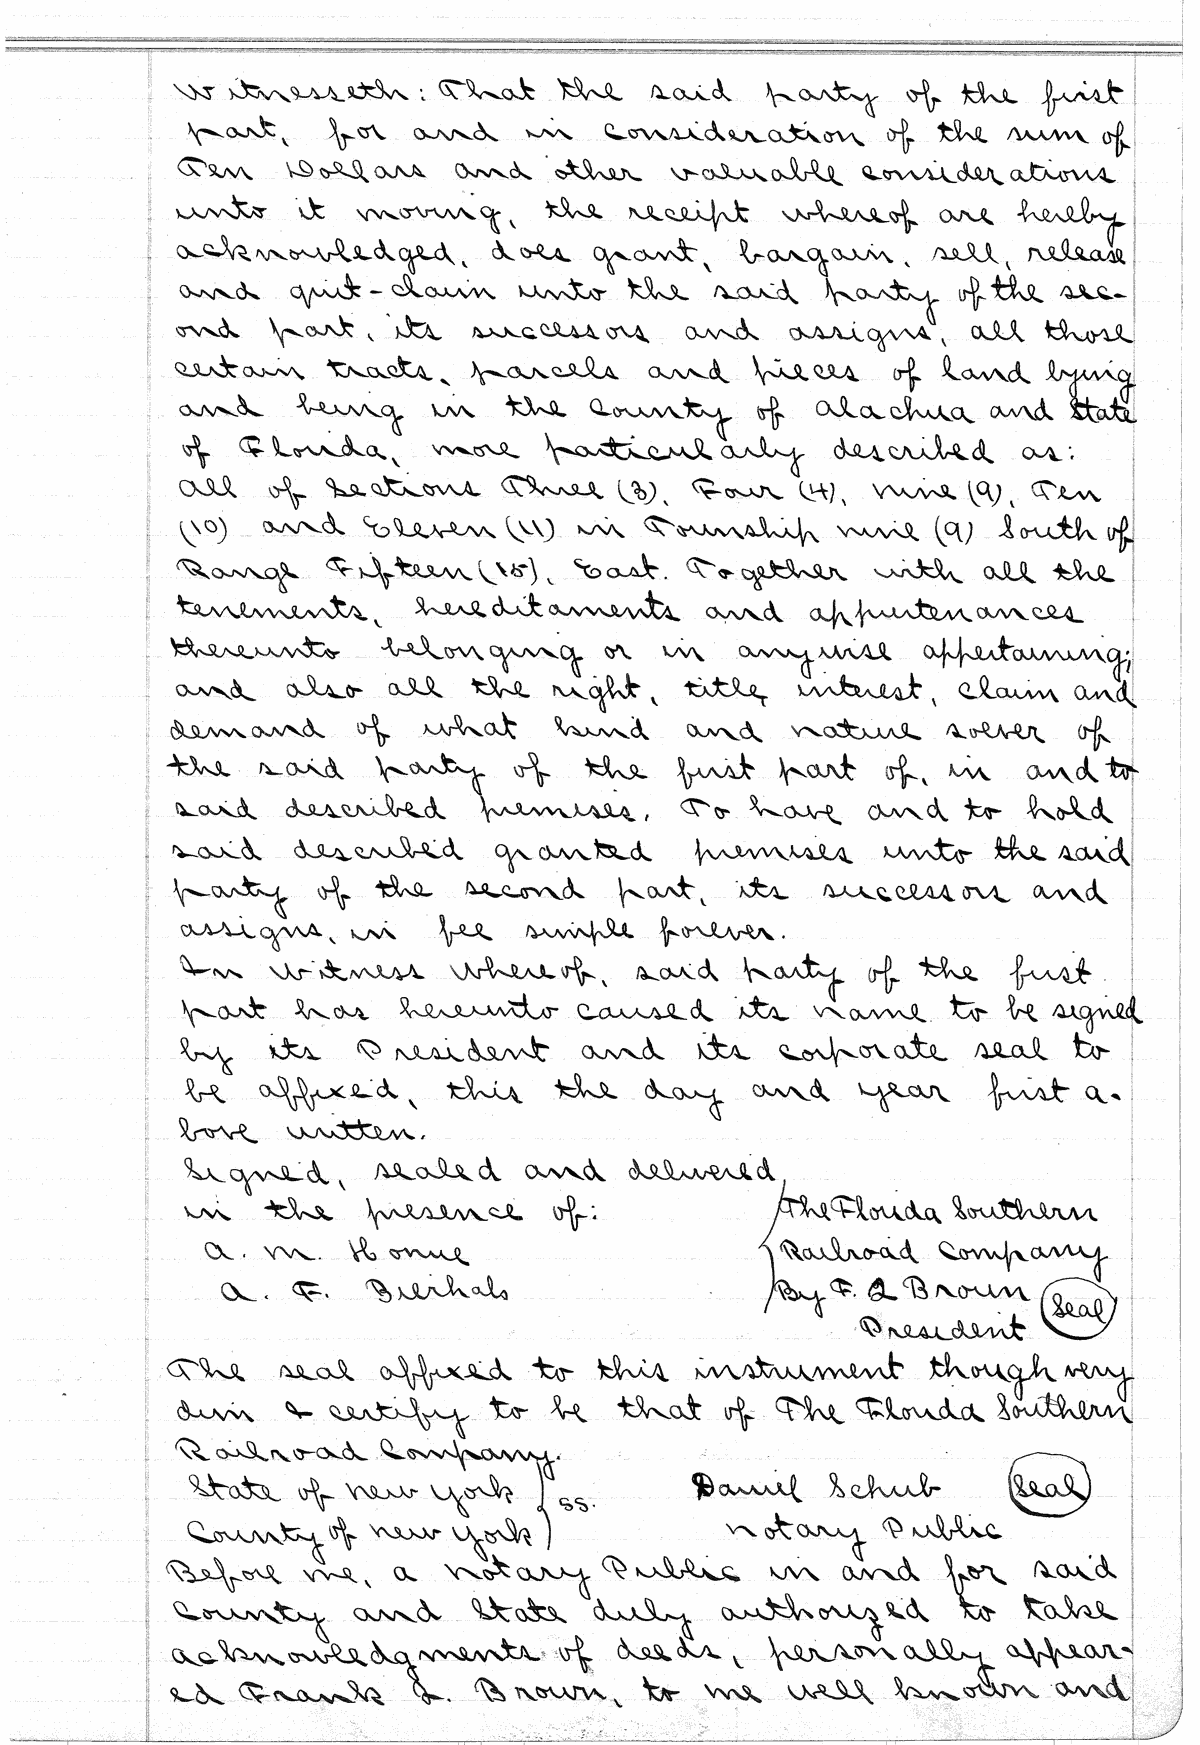 Witnesseth: That the said party of the first
part, for and in consideration of the sum of
Ten Dollars and other valuable considerations
unto it moving, the receipt whereof are hereby
acknowledged, does grant, bargain, sell, release
and quit-claim unto the said party of the sec-
ond part, its successors and assigns, all those
certain tracts, parcels and pieces of land lying
and being in the County of Alachua and State
of Florida, more particularly described as:
All of Sections Three (3), Four (4), Nine (9), Ten
(10) and Eleven (11) in Township nine (9) South of
Range Fifteen (15), East. Together with all the
tenements, hereditaments and appurtenances
thereunto belonging or in anywise appertaining;
and also all the right, title, interest, claim and
demand of what kind and nature soever of
the said party of the first part of, in and to
said described premises. To have and to hold
said described granted premises unto the said
party of the second part, its successors and
assigns, in fee simple forever.
In Witness whereof, said party of the first
part has hereunto caused its name to be signed
by its President and its corporate seal to
be affixed, this the day and year first a-
bove written.
Signed, sealed and delivered
in the presence of: The Florida Southern
A. M. Railroad Company
A. F. Bierhals By F. Q Brown Seal
President
The seal affixed to this instrument though very
dim I certify to be that of The Florida Southern
Railroad Company.
State of New York ss. Daniel Schub Seal
County of New York Notary Public
Before me, a Notary Public in and for said
County and State duly authorized to take
acknowledgments of deeds, personally appear-
ed Frank Q. Brown, to me well known and